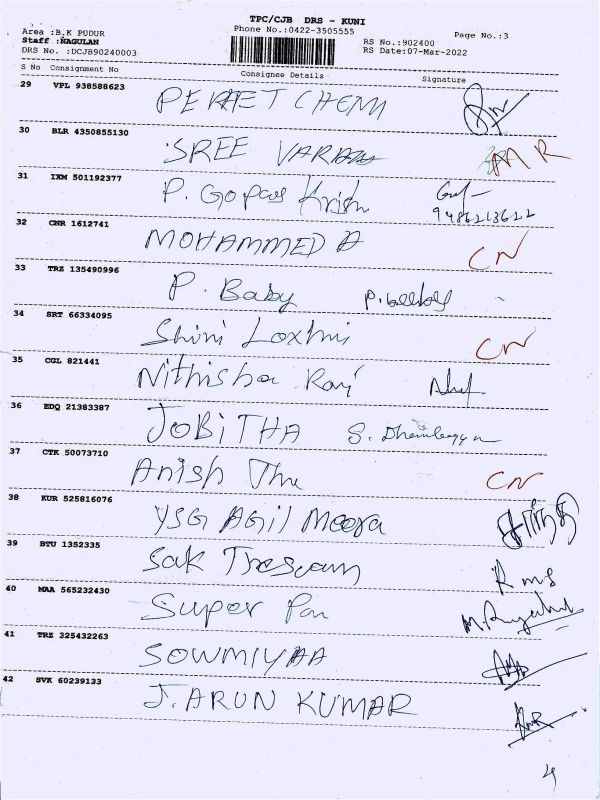 TPC/CJB DRS - KUNI
Area :B.K PUDUR
Phone No.:0422-3505555
Page No.:3
Staff :NAGULAN
RS No.:902400
DRS No. :DCJB90240003
RS Date:07-Mar-2022
S No Consignment No Consignee Details Signature
29 VPL 938588623
CHENN
30 BLR 4350855130
SREE
31 IXM 501192377
P. Gopal Krish
9486213622
32 CNR 1612741
MOHAMMED A CN
33 TRZ 135490996
P. Baby
34 SRT 66334095
Shini Loxhmi CN
35 CGL 821441
Nithisha Raj
36 EDQ 21383387
JOBITHA
37 CTK 50073710
Anish CN
38 KUR 525816076
YSG AGil Meera
39 BTU 1352335
Sak Rms
40 MAA 565232430
Super
41 TRZ 325432263
SOWMIYAA
42 SVK 60239133
J. ARUN KUMAR
4